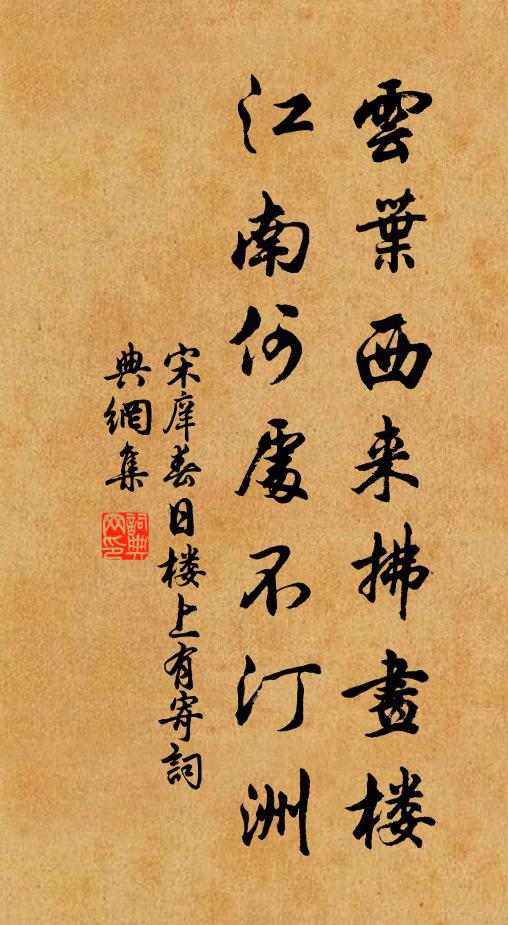 雲葉西来拂畫楼
江南何處不汀洲
宋庠春日楼上有寄詞
典網集
詞典网印